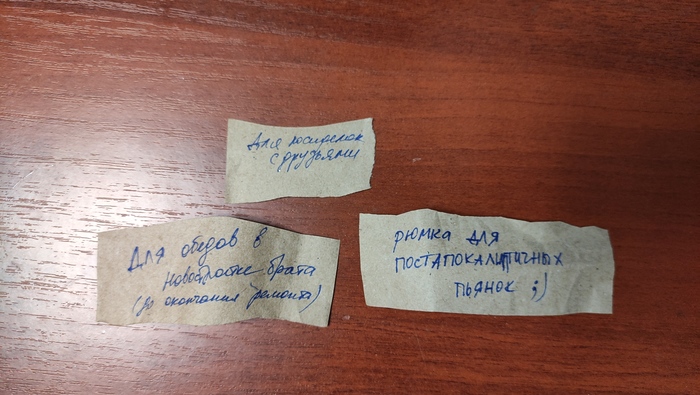 Для посиделок
с друзьями
Для обедов в
новостройке брата
(до окончания ремонта)
РЮМКА ДЛЯ
ПОСТАПОКАЛИПТИЧНЫХ
ПЬЯНОК ;)